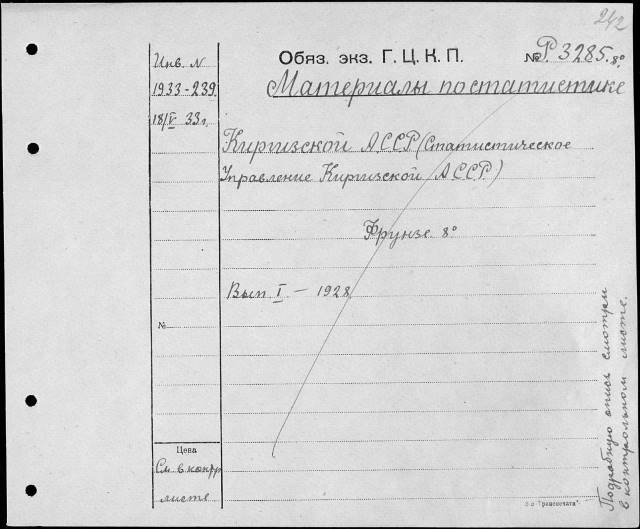 242
Обяз. экз. Г. Ц. К. П.
№ Р 3285. 8°
Материалы по статистике
Инв. N
1933-239
18/V 33 г.
Киргизской АССР (Статистическое
Управление Киргизской АССР)
Фрунзе 8°
Вып. I — 1928
№
Цена
См. в контр
листе
Подробную опись смотри
в контрольном листе.